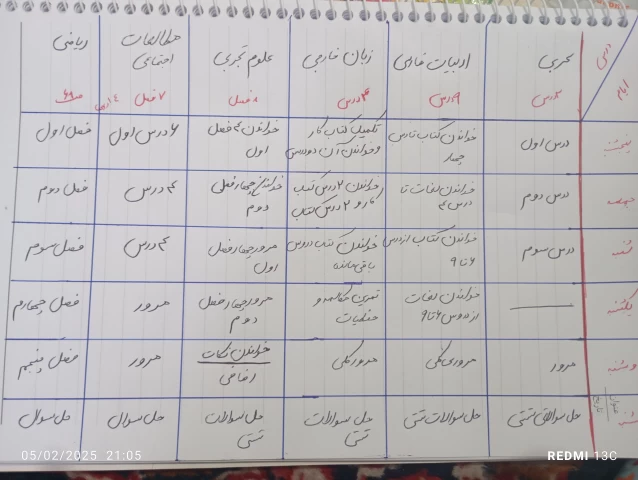 درس
ایام
عربی
ادبیات فارسی
زبان خارجی
علوم تجربی
مطالعات
اجتماعی
ریاضی
۳ درس
۹ درس
۴ درس
۸ فصل
۷ فصل
پنجشنبه
درس اول
خواندن کتاب تا درس
چهار
تکمیل کتاب کار
و خواندن آن دو درس
خواندن ۴ فصل
اول
۶ درس اول
فصل اول
جمعه
درس دوم
خواندن لغات تا
درس ۴
خواندن ۲ درس کتاب
کار و ۲ درس کتاب
خواندن چهار فصل
دوم
۴ درس
فصل دوم
شنبه
درس سوم
خواندن کتاب از درس
۶ تا ۹
خواندن کتاب دروس
باقی مانده
مرور چهار فصل
اول
۴ درس
فصل سوم
یکشنبه
خواندن لغات
از دروس ۶ تا ۹
تمرین مکالمه و
مرور چهار فصل
دوم
مرور
فصل چهارم
دوشنبه
مرور
مرور کلی
مرور کلی
خواندن نکات
اضافی
مرور
فصل پنجم
حل سوالات تستی
حل سوالات تستی
حل سوالات
تستی
حل سوالات
تستی
حل سوال
حل سوال
05/02/2025 21:05
REDMI 13C